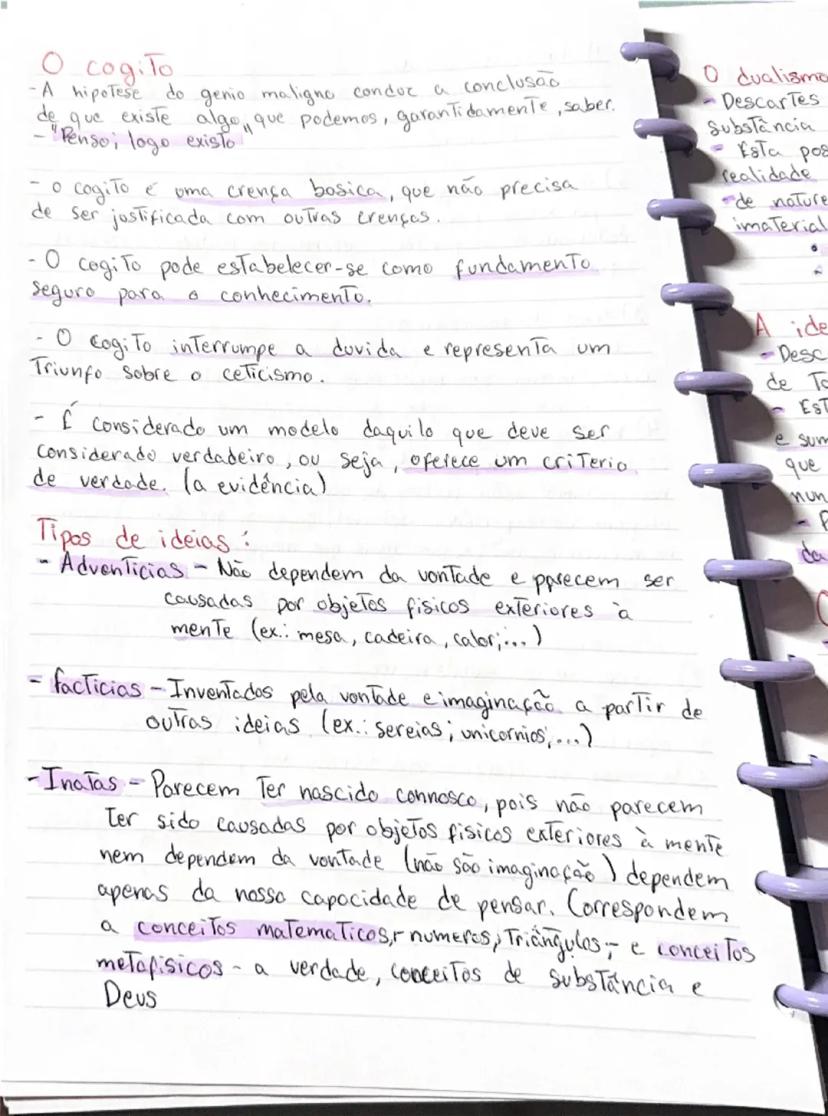 O cogito
- A hipotese do genio maligno conduz a conclusão
de que existe algo, que podemos, garantidamente, saber.
- "Penso; logo existo"
- o cogito é uma crença bosica, que não precisa
de ser justificada com outras crenços.
- O cogito pode estabelecer-se como fundamento
seguro para o conhecimento.
- O cogito interrumpe a duvida e representa um
Triunfo sobre o ceticismo.
- É considerado um modelo daquilo que deve ser
considerado verdadeiro, ou seja, oferece um criterio
de verdade. (a evidência)
Tipos de ideias:
- Adventícias - Não dependem da vontade e parecem ser
causadas por objetos fisicos exteriores à
mente (ex.: mesa, cadeira, calor;...)
- facticias - Inventados pela vontade e imaginação a partir de
outras ideias (ex.: sereias; unicornios;...)
- Inatas - Parecem Ter nascido connosco, pois não parecem
ter sido causadas por objetos fisicos exteriores à mente
nem dependem da vontade (não são imaginação) dependem
apenas da nossa capacidade de pensar. Correspondem
a conceitos matematicos, - numeros, Triângulos, - e conceitos
metafisicos - a verdade, conceitos de substância e
Deus
O dualismo
- Descartes
substância
- Esta pos
realidade
- de nature
imaterial
A ide
- Desc
de To
- Est
e sum
que
nun
da